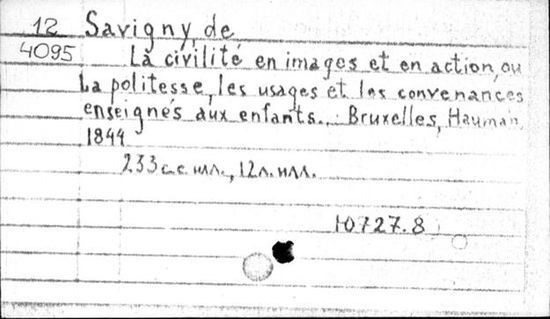 12 Savigny, de
4095 La civilité en images et en action, ou
la politesse, les usages et les convenances
enseignés aux enfants... Bruxelles, Hauman,
1844
233 с. с. илл., 12 л. илл.
Ю727.8